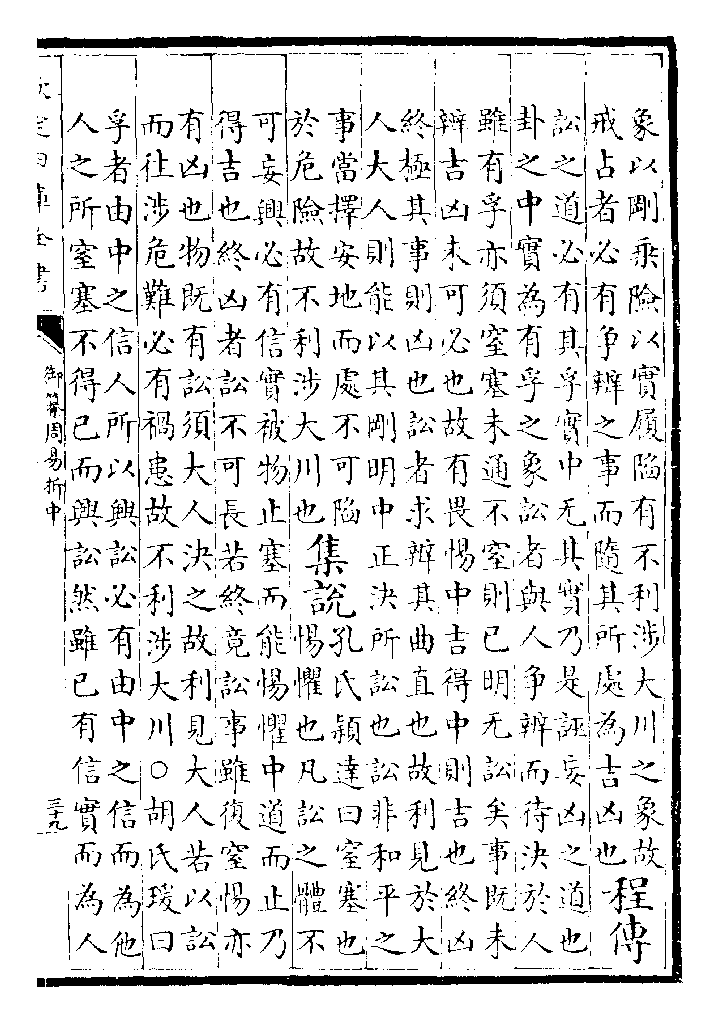 象以剛乘險以實履陷有不利涉大川之象故
戒占者必有争辨之事而隨其所處為吉凶也
程傳
訟之道必有其孚實中无其實乃是誣妄凶之道也
卦之中實為有孚之象訟者與人争辨而待決於人
雖有孚亦須窒塞未通不窒則已明无訟矣事既未
辨吉凶未可必也故有畏惕中吉得中則吉也終凶
終極其事則凶也訟者求辨其曲直也故利見於大
人大人則能以其剛明中正決所訟也訟非和平之
事當擇安地而處不可陷
於危險故不利涉大川也
集說
孔氏穎達曰窒塞也
惕懼也凡訟之體不
可妄興必有信實被物止塞而能惕懼中道而止乃
得吉也終凶者訟不可長若終竟訟事雖復窒惕亦
有凶也物既有訟須大人決之故利見大人若以訟
而往涉危難必有禍患故不利涉大川○胡氏瑗曰
孚者由中之信人所以興訟必有由中之信而為他
人之所窒塞不得已而興訟然雖已有信實而為人
欽定四庫全書
御纂周易折中
三十九